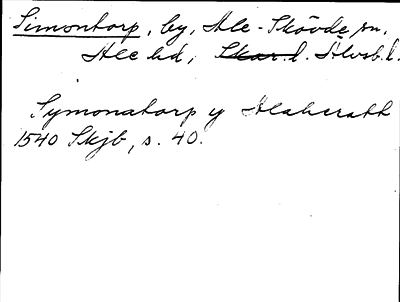 Simontorp, by, Ale-Skövde sn,
Ale hd, Skar. l. Älvsb. l.
Symonatorp y Alahærath
1540 Skjb, s. 40.